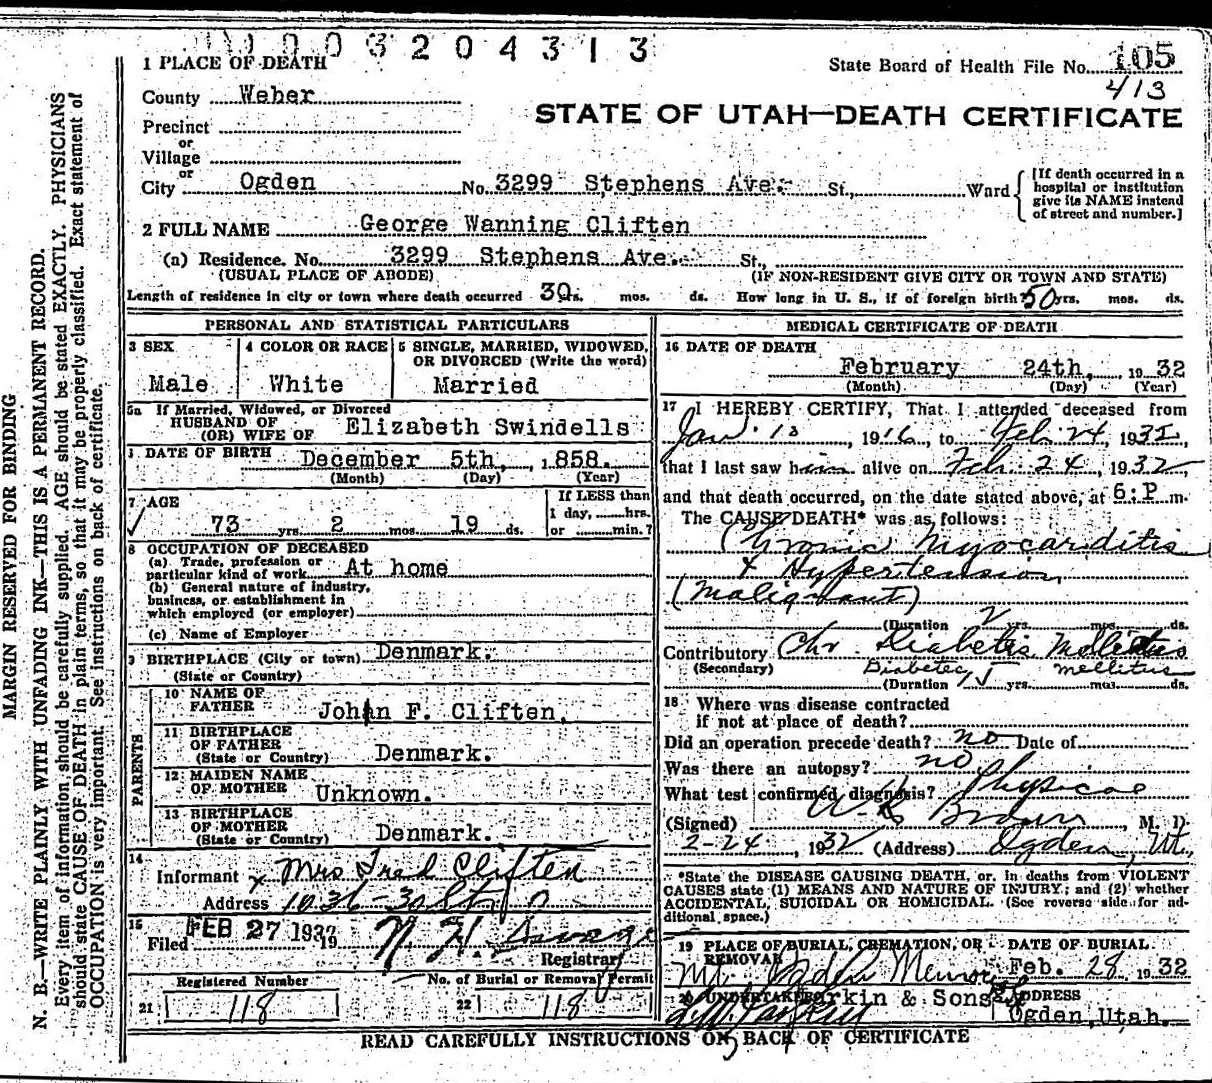 0003204313
1 PLACE OF DEATH
State Board of Health File No. 105
413
County Weber
STATE OF UTAH—DEATH CERTIFICATE
Precinct
or
Village
or
City Ogden No. 3299 Stephens Ave. St., Ward
[If death occurred in a hospital or institution give its NAME instead of street and number.]
2 FULL NAME George Wanning Cliften
(a) Residence. No. 3299 Stephens Ave. St.,
(USUAL PLACE OF ABODE) (IF NON-RESIDENT GIVE CITY OR TOWN AND STATE)
Length of residence in city or town where death occurred 30 yrs. mos. ds. How long in U. S., if of foreign birth? 50 yrs. mos. ds.
PERSONAL AND STATISTICAL PARTICULARS
3 SEX
Male
4 COLOR OR RACE
White
5 SINGLE, MARRIED, WIDOWED, OR DIVORCED (Write the word)
Married
5a If Married, Widowed, or Divorced
HUSBAND OF
(OR) WIFE OF Elizabeth Swindells
DATE OF BIRTH December 5th, 1858.
(Month) (Day) (Year)
7 AGE
73 yrs. 2 mos. 19 ds.
If LESS than
1 day, hrs.
or min.?
8 OCCUPATION OF DECEASED
(a) Trade, profession or
particular kind of work At home
(b) General nature of industry,
business, or establishment in
which employed (or employer)
(c) Name of Employer
9 BIRTHPLACE (City or town) Denmark.
(State or Country)
PARENTS
10 NAME OF
FATHER Johan F. Cliften,
11 BIRTHPLACE
OF FATHER
(State or Country) Denmark.
12 MAIDEN NAME
OF MOTHER Unknown.
13 BIRTHPLACE
OF MOTHER
(State or Country) Denmark.
14
Informant x Mrs Fred Cliften
Address 1036-30 St
15
Filed FEB 27 1932 19 N. H. Savage
Registrar
Registered Number No. of Burial or Removal Permit
21 118 22 118
MEDICAL CERTIFICATE OF DEATH
16 DATE OF DEATH
February 24th, 1932
(Month) (Day) (Year)
17 I HEREBY CERTIFY, That I attended deceased from
Jan. 10, 1916, to Feb 24, 1932,
that I last saw him alive on Feb. 24, 1932,
and that death occurred, on the date stated above, at 6:P m.
The CAUSE DEATH* was as follows:
Chronic Myocarditis
+ Hypertension
(Malignant)
(Duration 2 yrs. mos. ds.
Contributory Chr. Diabetis Mellitus
(Secondary) Diabetes mellitus
(Duration 15 yrs. mos. ds.
18 Where was disease contracted
if not at place of death?
Did an operation precede death? no Date of
Was there an autopsy? no
What test confirmed diagnosis? Physical
(Signed) Brown, M. D.
2-24, 1932 (Address) Ogden, Ut.,
*State the DISEASE CAUSING DEATH, or, in deaths from VIOLENT
CAUSES state (1) MEANS AND NATURE OF INJURY; and (2) whether
ACCIDENTAL, SUICIDAL OR HOMICIDAL. (See reverse side for ad-
ditional space.)
19 PLACE OF BURIAL, CREMATION, OR DATE OF BURIAL
REMOVAL
Feb. 28 1932
20 UNDERTAKER Larkin & Sons ADDRESS
Ogden, Utah.
READ CAREFULLY INSTRUCTIONS ON BACK OF CERTIFICATE
MARGIN RESERVED FOR BINDING
N. B.—WRITE PLAINLY WITH UNFADING INK—THIS IS A PERMANENT RECORD.
Every item of information should be carefully supplied. AGE should be stated EXACTLY. PHYSICIANS
should state CAUSE OF DEATH in plain terms, so that it may be properly classified. Exact statement of
OCCUPATION is very important. See instructions on back of certificate.